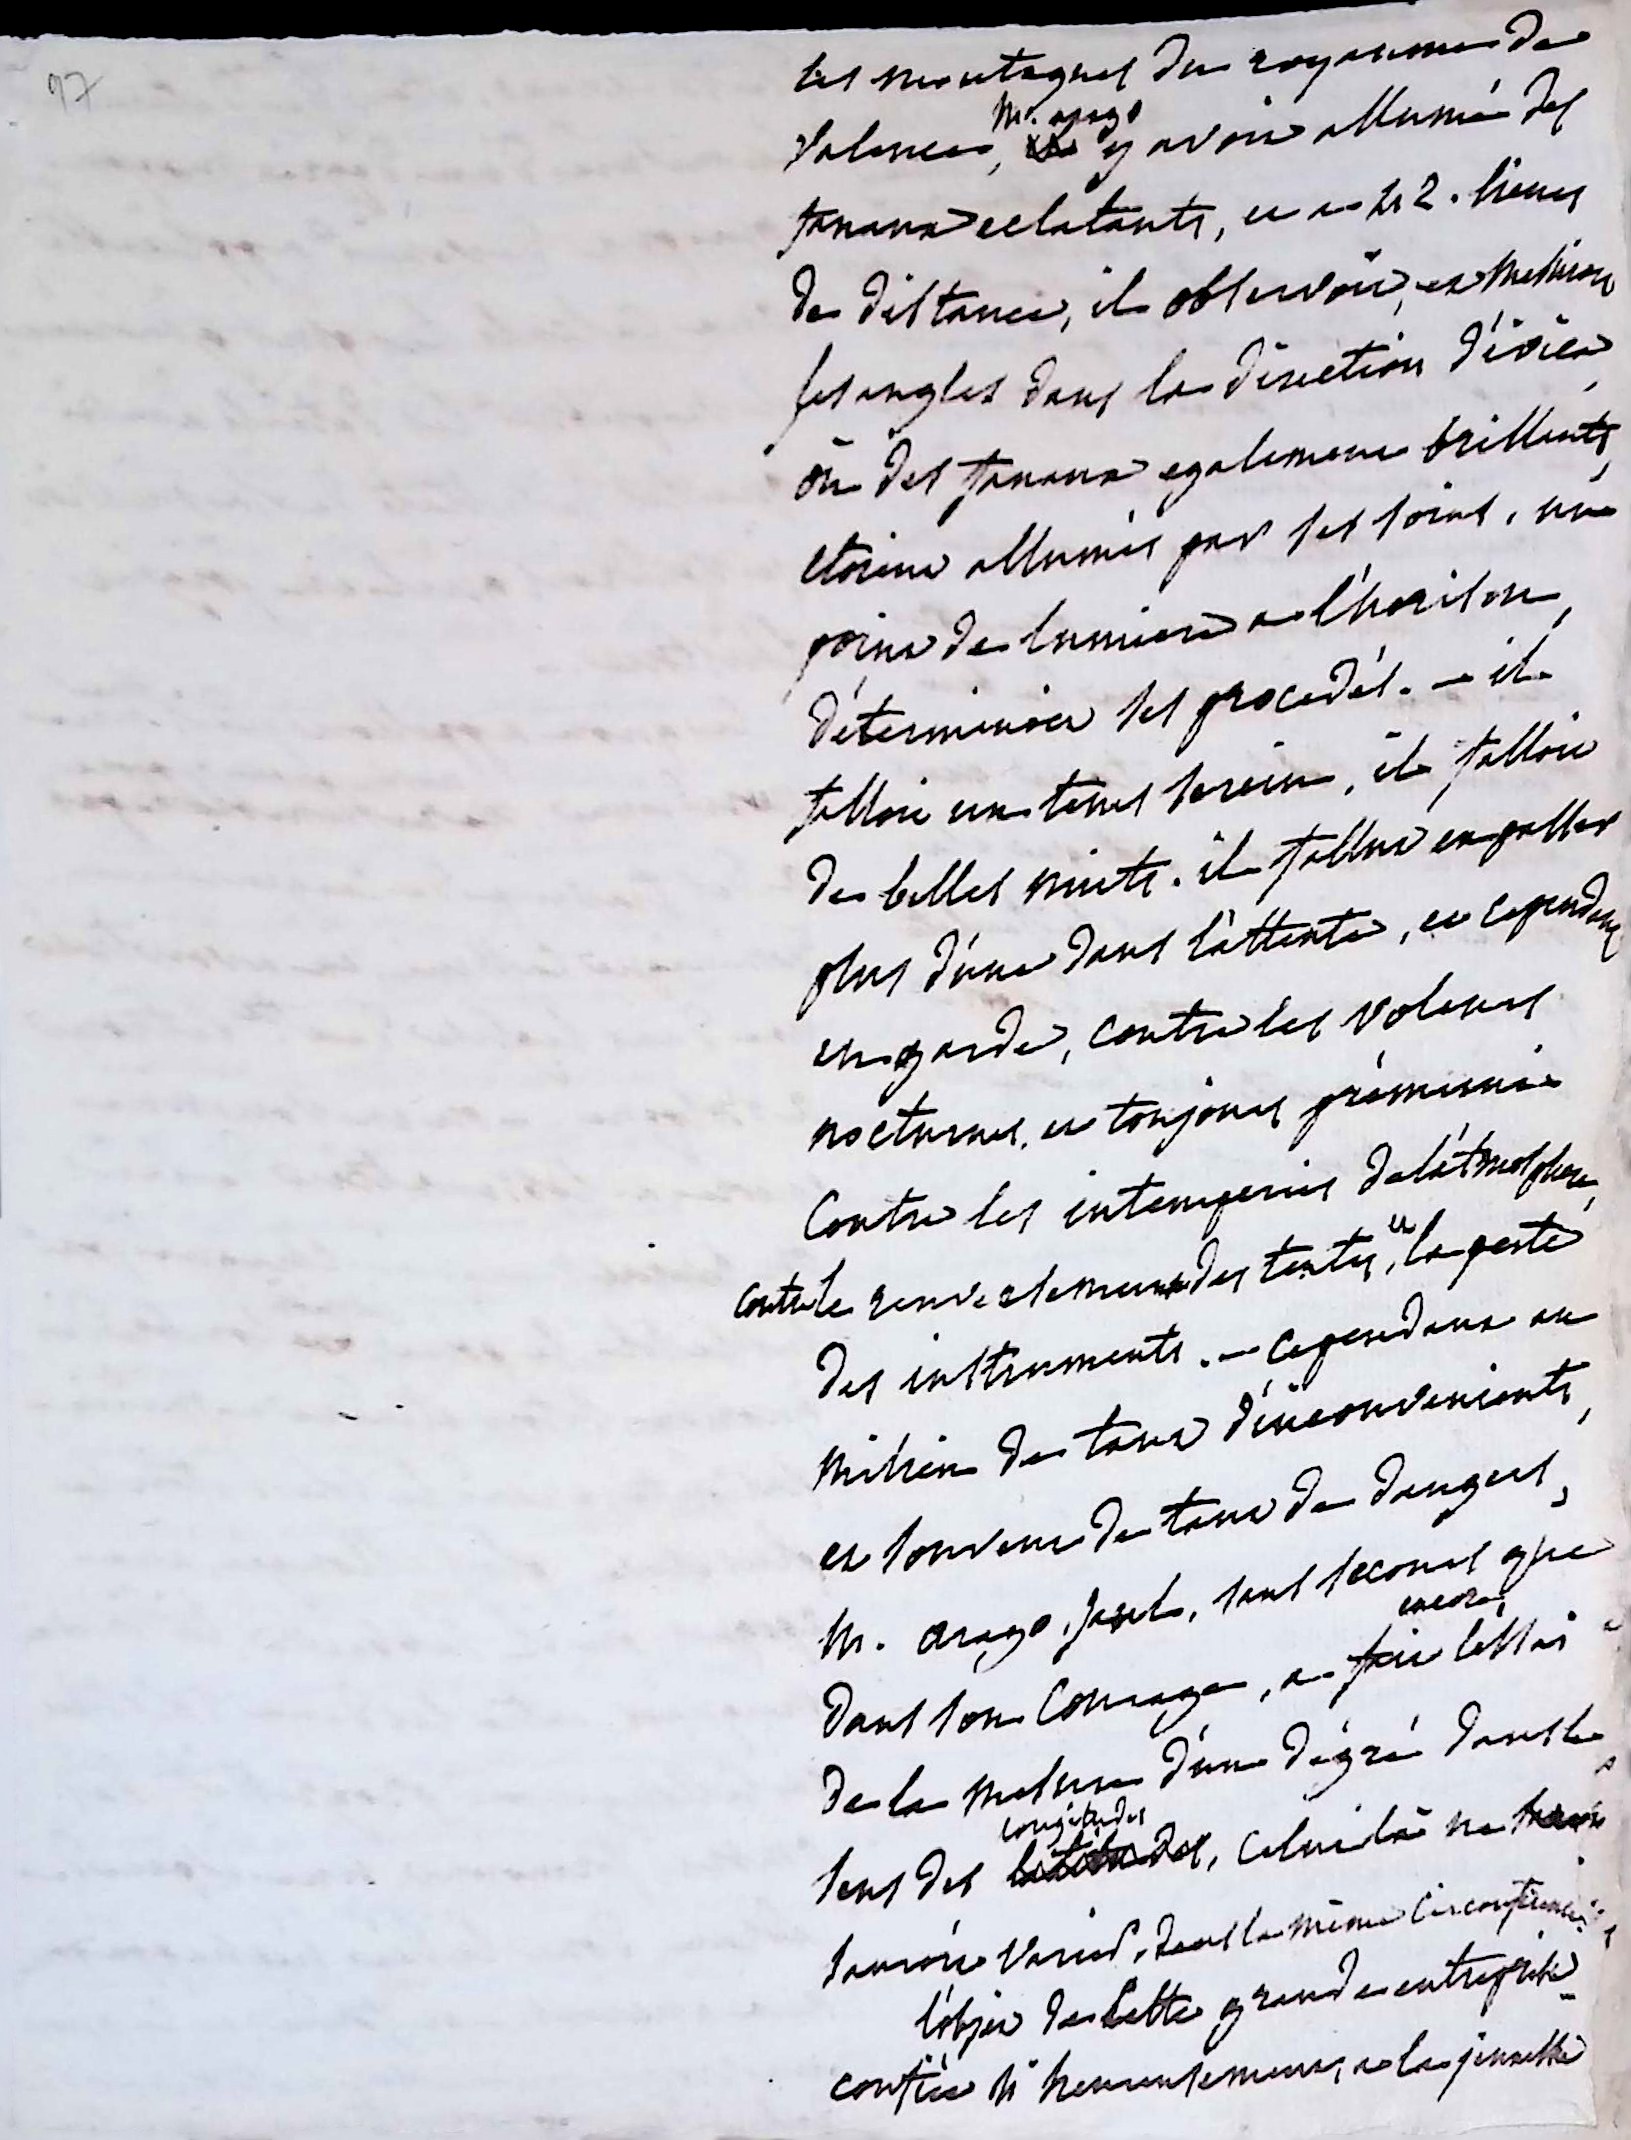 97
les montagnes du royaume de
Valence, m. arago y avoit allumé des
fanaux eclatants, et a 42. lieues
de distance, il observoit, et mesuroit
ses angles dans la direction d'ivica
où des fanaux egalement brillants,
etoient allumés par ses soins. un
point de lumiere a l'horison,
déterminoit ses procedés. - il
falloit un tems serein, il falloit
de belles nuits. il fallut en passer
plus d'une dans l'attente, et cependant
en garde, contre les voleurs
nocturnes, et toujours prémuni
contre les intemperies de l'atmosphere,
contre le renversement des tentes, et la perte
des instruments. - cependant au
milieu de tant d'inconvenients,
et souvent de tant de dangers,
m. arago, seul, sans secours que
dans son courage, a fait encore l'essai
de la mesure d'un dégré dans le
sens des longitudes, celui là ne
sauroit varier, dans la même circonference
l'objet de cette grande entreprise
confiée si heureusement, a la jeunesse